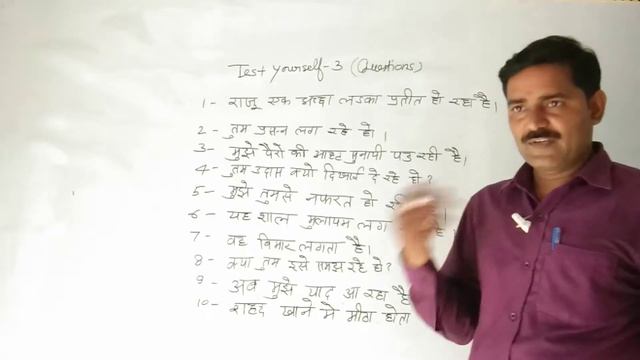 Test yourself-3 (Questions)
1- राजू एक अच्छा लडका प्रतीत हो रहा है।
2- तुम प्रसन्न लग रहे हो।
3- मुझे पैरो की आहट सुनायी पड रही है।
4- तुम उदास क्यो दिखाई दे रहे हो?
5- मुझे तुमसे नफरत हो
6- यह शाल मुलायम लग
7- वह बिमार लगता है।
8- क्या तुम इसे समझ रहे हो?
9- अब मुझे याद आ रहा है
10- शहद खाने मे मीठा होता